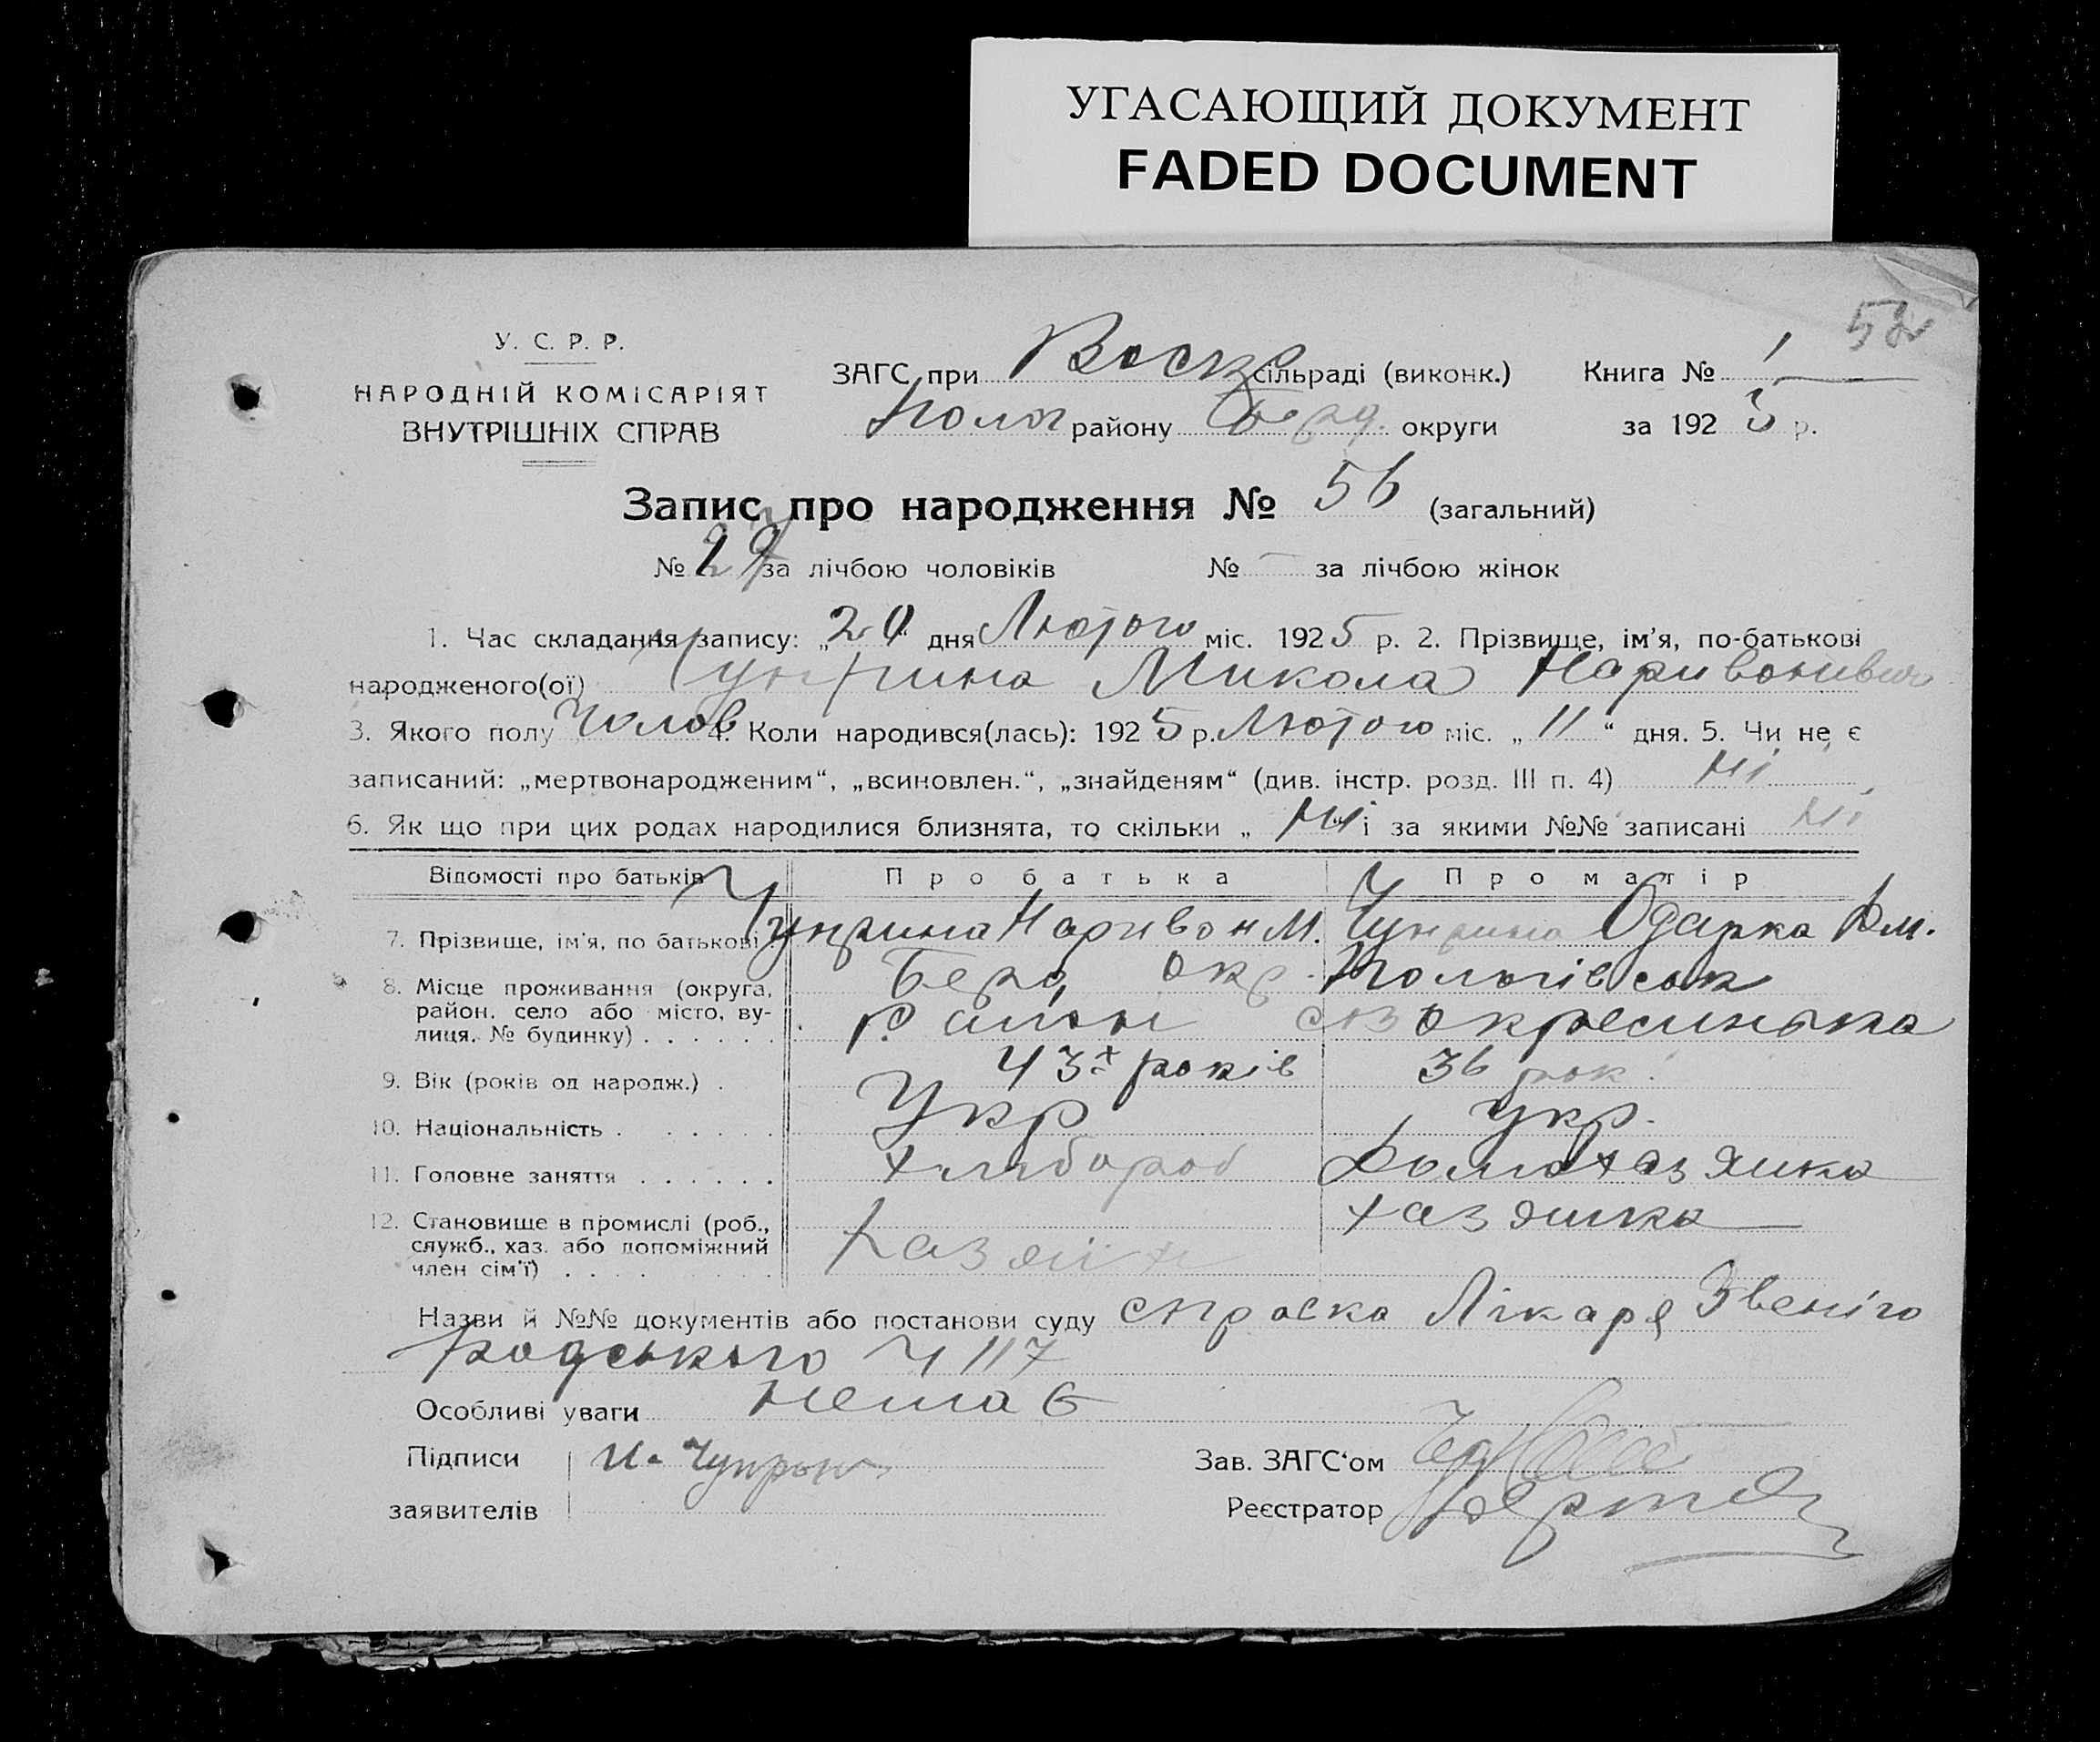 УГАСАЮЩИЙ ДОКУМЕНТ
FADED DOCUMENT
52
У. С. Р. Р.
НАРОДНІЙ КОМІСАРІЯТ
ВНУТРІШНІХ СПРАВ
ЗАГС при Воскр сільраді (виконк.) Книга № 1
Полог району Берд. округи за 192 5 р.
Запис про народження № 56 (загальний)
№ 27 за лічбою чоловіків № – за лічбою жінок
1. Час складання запису: „20“ дня Лютого міс. 1925 р. 2. Прізвище, ім'я, по-батькові
народженого(ої) Чуприна Микола Наривонивич
3. Якого полу Чолов 4. Коли народився(лась): 1925 р. Лютого міс. „11“ дня. 5. Чи не є
записаний: „мертвонародженим“, „всиновлен.“, „знайденям“ (див. інстр. розд. III п. 4) ні
6. Як що при цих родах народилися близнята, то скільки „ ні “ і за якими №№ записані ні
Відомості про батьків Про батька Про матір
7. Прізвище, ім'я, по батькові. Чуприна Наривон М. Чуприна Одарка Дм.
8. Місце проживання (округа, Берд. окр. Пологівськ
район, село або місто, ву-
лиця, № будинку) . . . . . . район с Воскресинька
9. Вік (років од народж.) . 43 років 36 рок.
10. Національність . . . . . . Укр укр.
11. Головне заняття . . . . . . хлибороб Домохазяйка
12. Становище в промислі (роб., хазяйка
служб., хаз. або допоміжний хазяїн
член сім'ї) . . . .
Назви й №№ документів або постанови суду справка Лікаря Звеніго
родського Ч 117
Особливі уваги немає
Підписи Н. Чупрын Зав. ЗАГС'ом
заявителів Реєстратор